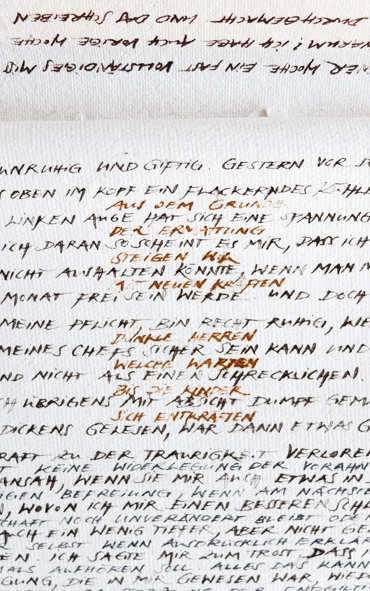 DURCHGEMACHT UND DAS SCHREIBEN
WARUM! ICH HABE AUCH VORIGE WOCHE
EINER WOCHE EIN FAST VOLLSTÄNDIGES MISS
UNRUHIG UND GIFTIG. GESTERN VOR
OBEN IM KOPF EIN FLACKERNDES KÜHLE
AUS DEM GRUNDE
LINKEN AUGE HAT SICH EINE SPANNUNG
DER ERMATTUNG
ICH DARAN SO SCHEINT ES MIR, DASS ICH
STEIGEN WIR
NICHT AUSHALTEN KÖNNTE, WENN MAN
MIT NEUEN KRÄFTEN
MONAT FREI SEIN WERDE UND DOCH
MEINE PFLICHT, BIN RECHT RUHIG, WE
DUNKLE HERREN
MEINES CHEFS SICHER SEIN KANN UND
WELCHE WARTEN
ND NICHT ALS EINEN SCHRECKLICHEN.
BIS DIE KINDER
CH ÜBRIGENS MIT ABSICHT DUMPF GEM
SICH ENTKRÄFTEN
DICKENS GELESEN, WAR DANN ETWAS G
RAFT ZU DER TRAURIGKEIT VERLOREN
KEINE WIDERLEGUNG DER VORAHN
ANSAH, WENN SIE MIR AUCH ETWAS IN
IGEN BEFREIUNG, WENN AM NÄCHSTE
N, WOVON ICH MIR EINEN BESSEREN SCHL
SCHAFT NOCH UNVERÄNDERT BLEIBT ODE
AUCH EIN WENIG TIEFER, ABER NICHT GE
SELBST WENN AUSDRÜCKLICH ERKLÄR
EN. ICH SAGTE MIR ZUM TROST, DASS I
MALS AUFHÖREN SOLL ALLES DAS KANN
GUNG, DIE IN MIR GEWESEN WAR, WIED